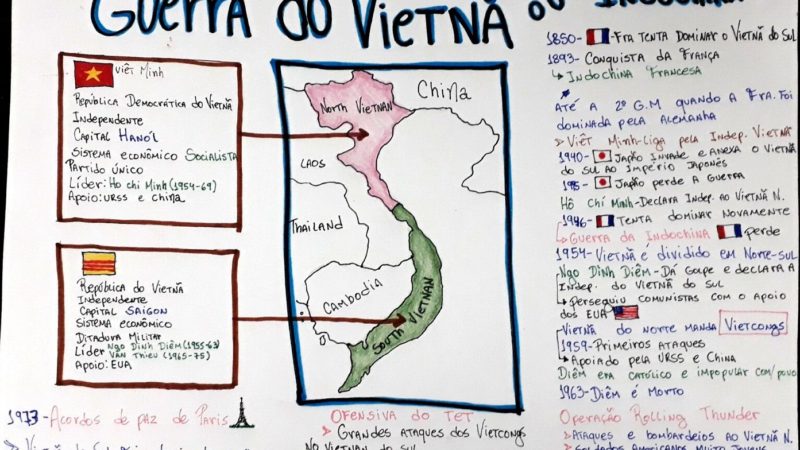 GUERRA DO VIETNÃ OU INDOCHINA
VIÊT MINH
REPÚBLICA DEMOCRÁTICA DO VIETNÃ
INDEPENDENTE
CAPITAL HANÓI
SISTEMA ECONÔMICO SOCIALISTA
PARTIDO ÚNICO
LÍDER: HO CHI MINH (1954-69)
APOIO: URSS E CHINA
REPÚBLICA DO VIETNÃ
INDEPENDENTE
CAPITAL SAIGON
SISTEMA ECONÔMICO
DITADURA MILITAR
LÍDER NGO DINH DIÊM (1955-63)
VAN THIEU (1965-75)
APOIO: EUA
NORTH VIETNAN
CHINA
LAOS
THAILAND
CAMBODIA
SOUTH VIETNAN
1850- FRA TENTA DOMINAR O VIETNÃ DO SUL
1893- CONQUISTA DA FRANÇA
INDOCHINA FRANCESA
ATÉ A 2º G.M QUANDO A FRA. FOI
DOMINADA PELA ALEMANHA
VIÊT MINH-LIGA PELA INDEP. VIETNÃ
1940- JAPÃO INVADE E ANEXA O VIETNÃ
DO SUL AO IMPÉRIO JAPONÊS
JAPÃO PERDE A GUERRA
HÔ CHÍ MINH-DECLARA INDEP. AO VIETNÃ N.
1946- TENTA DOMINAR NOVAMENTE
GUERRA DA INDOCHINA PERDE
1954- VIETNÃ É DIVIDIDO EM NORTE-SUL
NGO DINH DIÊM-DÁ GOLPE E DECLARA A
INDEP. DO VIETNÃ DO SUL
PERSEGUIU COMUNISTAS COM O APOIO
DOS EUA
VIETNÃ DO NORTE MANDA VIETCONGS
1959-PRIMEIROS ATAQUES
APOIADO PELA URSS E CHINA
DIÊM ERA CATÓLICO E IMPOPULAR COM/POVO
1963-DIÊM É MORTO
1973-ACORDOS DE PAZ DE PARIS
OFENSIVA DO TET
GRANDES ATAQUES DOS VIETCONGS
NO VIETNAN DO SUL
OPERAÇÃO ROLLING THUNDER
ATAQUES E BOMBARDEIOS AO VIETNÃ N.
SOLDADOS AMERICANOS MUITO JOVENS